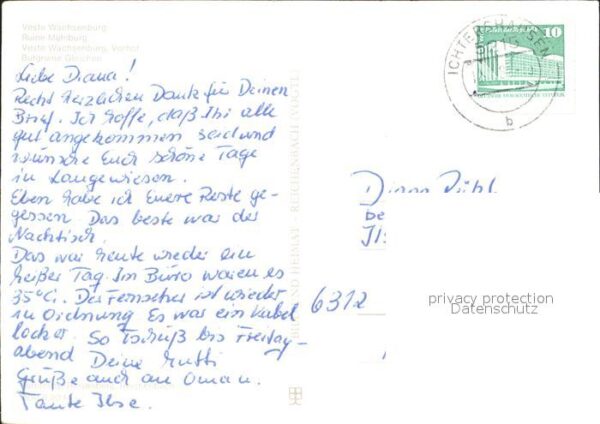 Veste Wachsenburg
Ruine Mühlburg
Veste Wachsenburg, Vorhof
Burgruine Gleichen
Liebe Diana!
Recht herzlichen Dank für Deinen
Brief. Ich hoffe, daß Ihr alle
gut angekommen seid und
wünsche Euch schöne Tage
in Langewiesen.
Eben habe ich Euere Reste ge-
gessen. Das beste war der
Nachtisch.
Das war heute wieder ein
heißer Tag. Im Büro waren es
35°C. Der Fernseher ist wieder
in Ordnung Es war ein Kabel
locker. So Tschüß bis Freitag-
abend Deine Mutti
Grüße auch an Oma u.
Tante Ilse.
BILD UND HEIMAT REICHENBACH (VOGTL)
ICHTERSHAUSEN
5216
b
10
Diana
6312
privacy protection
Datenschutz